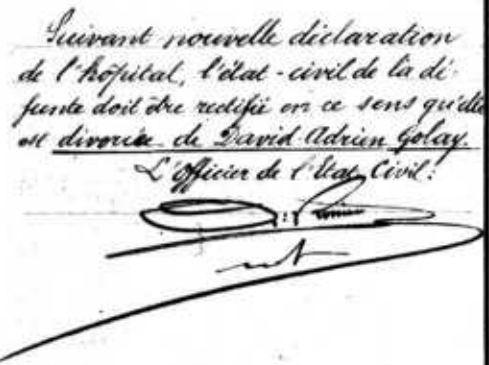 Suivant nouvelle déclaration
de l'hôpital, l'état-civil de la dé-
funte doit être rectifié en ce sens qu'elle
est divorcée de David Adrien Golay.
L'Officier de l'Etat Civil: